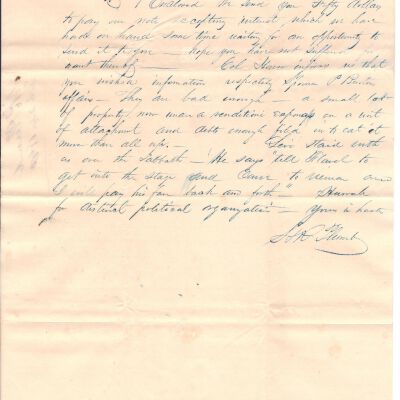 I Enclosed the send you Fifty dollars
to pay our note excepting interest, which we have
had on hand some time waiting for an opportunity to
send it to you — hope you have not suffered
want thereof — Col informs us that
you wished information respecting P
affairs — They are bad enough — a small lot
of property now under a venditioni exponas on a writ
of attachment and debts enough filed in to eat it
more than all up. — Staid with
us over the Sabbath — He says "tell to
get into the stage and Come to and
I will pay his fare back and forth" — Hurrah
for distinct political organization — Yours in haste
S & A